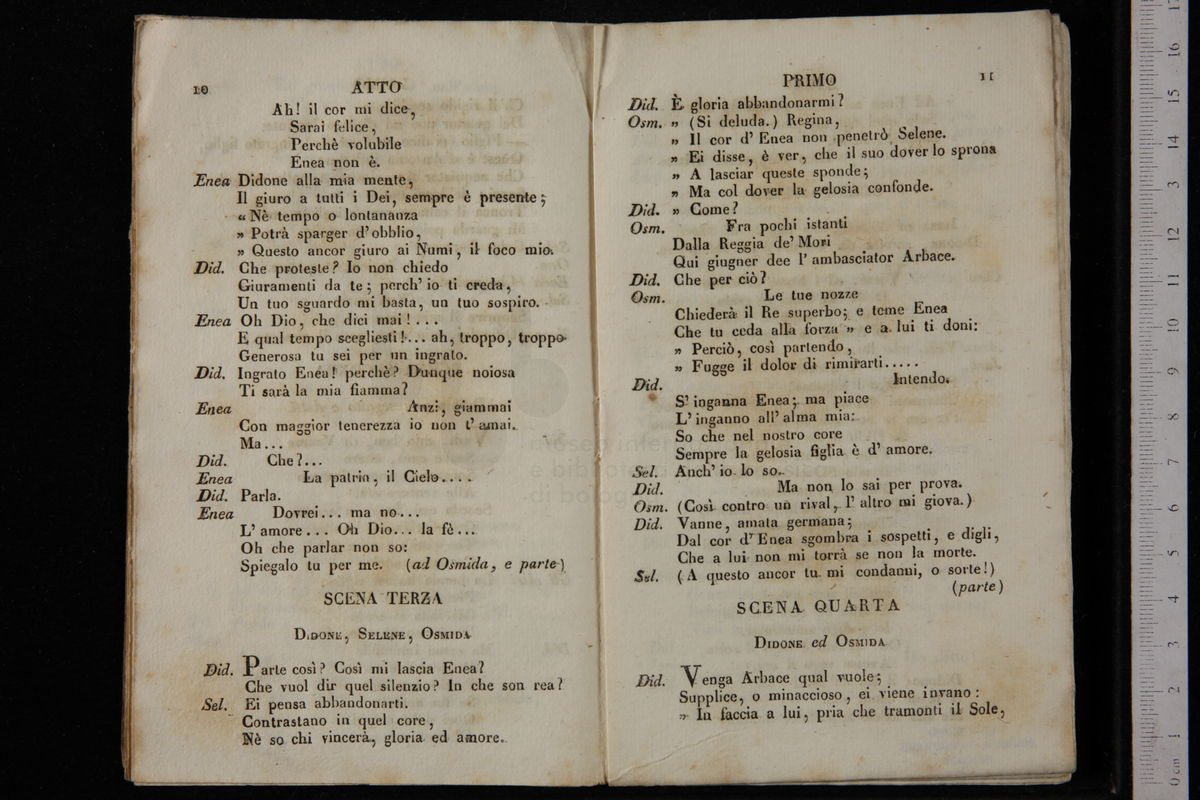 10 ATTO
Ah! il cor mi dice,
Sarai felice,
Perchè volubile
Enea non è.
Enea Didone alla mia mente,
Il giuro a tutti i Dei, sempre è presente;
„ Nè tempo o lontananza
„ Potrà sparger d'obblio,
„ Questo ancor giuro ai Numi, il foco mio.
Did. Che proteste? Io non chiedo
Giuramenti da te; perch' io ti creda,
Un tuo sguardo mi basta, un tuo sospiro.
Enea Oh Dio, che dici mai! ...
E qual tempo scegliesti!... ah, troppo, troppo
Generosa tu sei per un ingrato.
Did. Ingrato Enea! perchè? Dunque noiosa
Ti sarà la mia fiamma?
Enea Anzi, giammai
Con maggior tenerezza io non t' amai.
Ma...
Did. Che?...
Enea La patria, il Cielo....
Did. Parla.
Enea Dovrei... ma no...
L' amore... Oh Dio... la fè...
Oh che parlar non so:
Spiegalo tu per me. (ad Osmida, e parte)
SCENA TERZA
DIDONE, SELENE, OSMIDA
Did. Parte così? Così mi lascia Enea?
Che vuol dir quel silenzio? In che son rea?
Sel. Ei pensa abbandonarti.
Contrastano in quel core,
Nè so chi vincerà, gloria ed amore.
PRIMO 11
Did. È gloria abbandonarmi?
Osm. „ (Si deluda.) Regina,
„ Il cor d' Enea non penetrò Selene.
„ Ei disse, è ver, che il suo dover lo sprona
„ A lasciar queste sponde;
„ Ma col dover la gelosia confonde.
Did. „ Come?
Osm. Fra pochi istanti
Dalla Reggia de' Mori
Qui giugner dee l' ambasciator Arbace.
Did. Che per ciò?
Osm. Le tue nozze
Chiederà il Re superbo; e teme Enea
Che tu ceda alla forza „ e a lui ti doni:
„ Perciò, così partendo,
„ Fugge il dolor di rimirarti.....
Did. Intendo.
S' inganna Enea; ma piace
L' inganno all' alma mia:
So che nel nostro core
Sempre la gelosia figlia è d' amore.
Sel. Anch' io lo so.
Did. Ma non lo sai per prova.
Osm. (Così contro un rival, l' altro mi giova.)
Did. Vanne, amata germana;
Dal cor d' Enea sgombra i sospetti, e digli,
Che a lui non mi torrà se non la morte.
Sel. (A questo ancor tu mi condanni, o sorte!)
(parte)
SCENA QUARTA
DIDONE ed OSMIDA
Did. Venga Arbace qual vuole;
Supplice, o minaccioso, ei viene invano:
„ In faccia a lui, pria che tramonti il Sole,